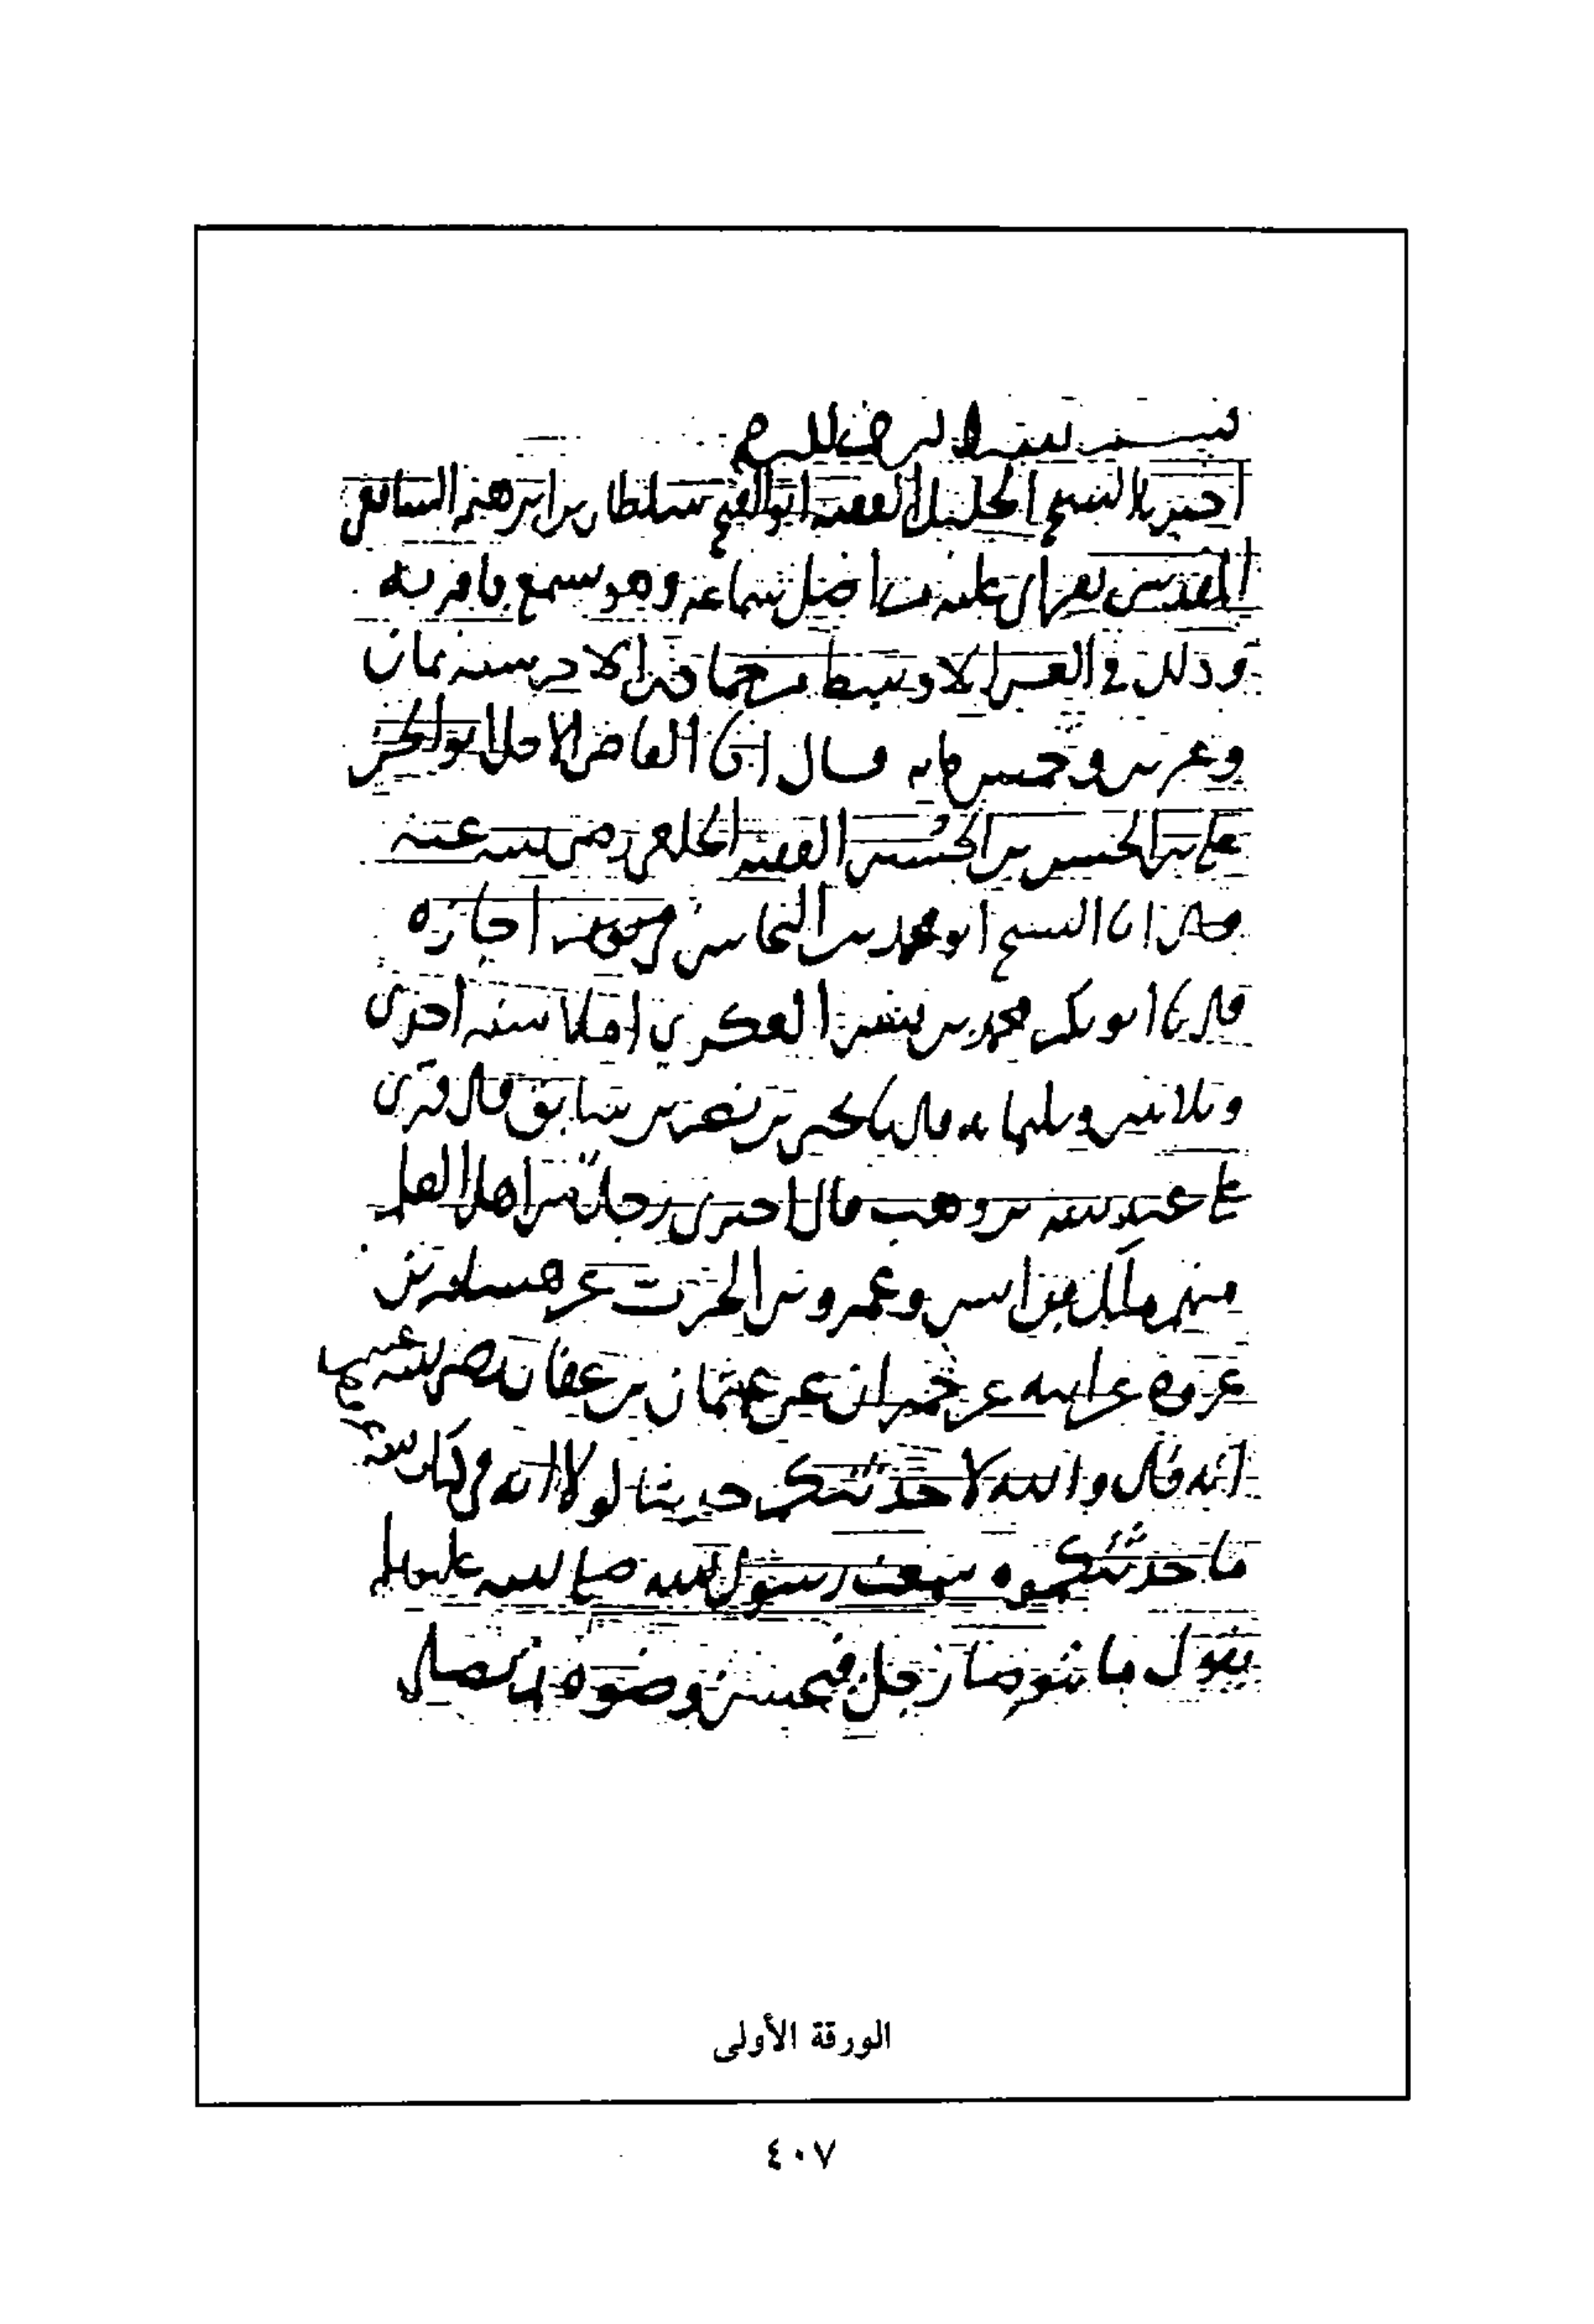 بسم الله الرحمن الرحيم
اخبرنا الشيخ الجليل الفقيه ابو الفتح سلطان بن ابرهيم الشافعي
المقدسي بقراتي عليه من اصل سماعه وهو يسمع فاقر به
وذلك في العشر الاوسط من جمادى الاخر سنه ثمان
وعشرين وخمس مايه قال انا القاضي الاجل ابو الحسن
علي بن الحسن بن الحسين الفقيه الخلعي رضي الله عنه
قال انا الشيخ ابو محمد بن النحاس اجازه
قال نا ابو بكر محمد بن بشر العكري املا سنه احدى
وثلاثين وثلثمايه قال نا بحر بن نصر بن سابق قال قرى
على عبد الله بن وهب قال اخبرني رجال من اهل العلم
منهم ملك بن انس وعمرو بن الحرث عن هشام بن
عروه عن ابيه عن حمران عن عثمان بن عفان رضي الله عنهما
انه قال والله لاحدثنكم حديثا لولا انه في كتاب الله
ما حدثتكموه سمعت رسول الله صلى الله عليه وسلم
يقول ما يتوضا رجل فيحسن وضوه ثم يصلي
الورقة الأولى
٤٠٧